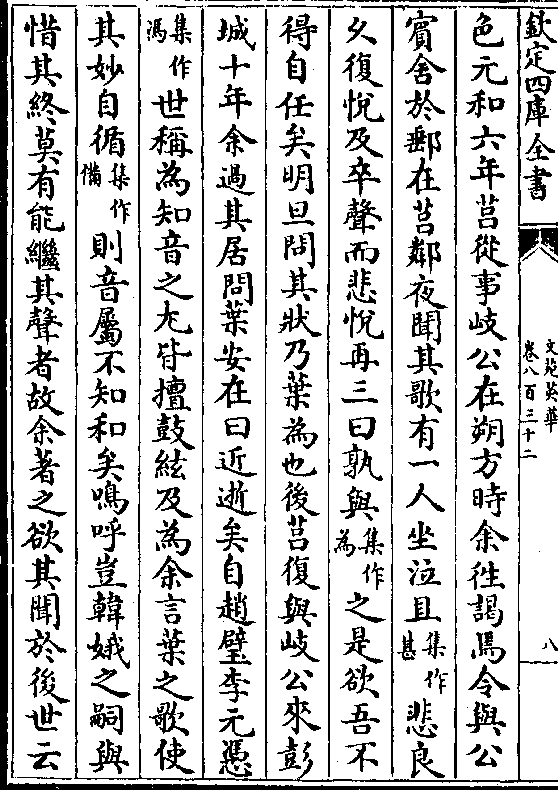 欽定四庫全書
文苑英華
卷八百三十二
八
色元和六年莒從事岐公在朔方時余徃謁焉令與公
賓舍於郵在莒鄰夜聞其歌有一人坐泣且集作甚悲良
乆復悅及卒聲而悲悅再三曰孰與集作為之是欲吾不
得自任矣明旦問其狀乃葉為也後莒復與岐公來彭
城十年余過其居問葉安在曰近逝矣自趙璧李元憑
集作馮世稱為知音之尢皆擅鼓絃及為余言葉之歌使
其妙自循集作備則音屬不知和矣嗚呼豈韓娥之嗣與
惜其終莫有能繼其聲者故余著之欲其聞於後世云